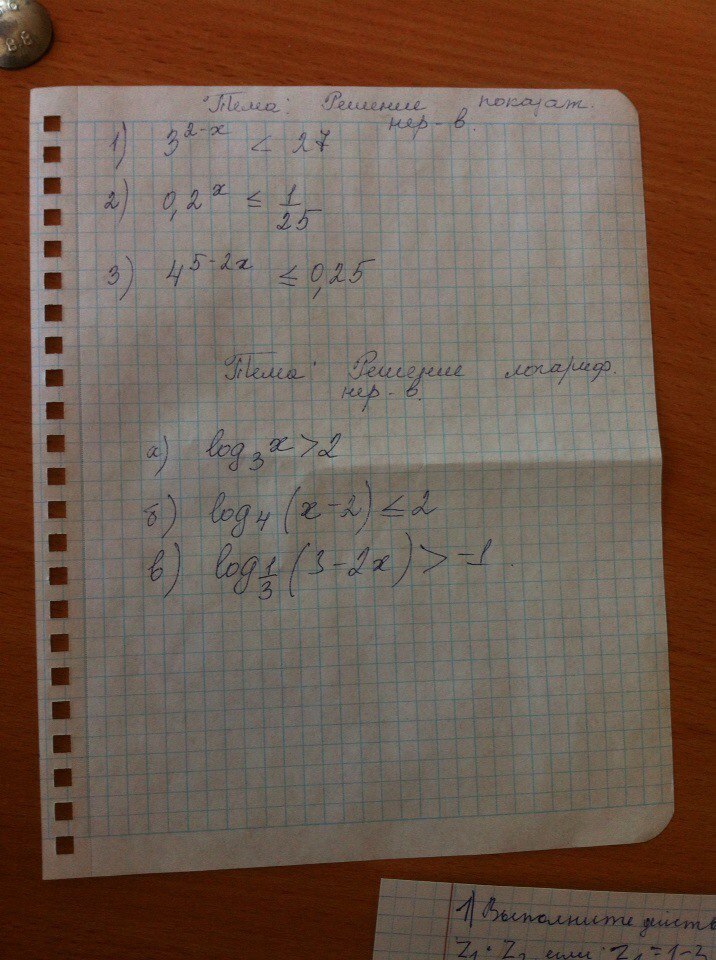 Тема: Решение показат.
нер-в.
1) 3^{2-x} < 27
2) 0,2^x ≤ 1/25
3) 4^{5-2x} ≤ 0,25
Тема: Решение логариф.
нер-в.
а) log_3 x > 2
б) log_4 (x-2) ≤ 2
в) log_{1/3} (3-2x) > -1.
1) Выполните действ
Z_1 · Z_2, если: Z_1 = 1-3